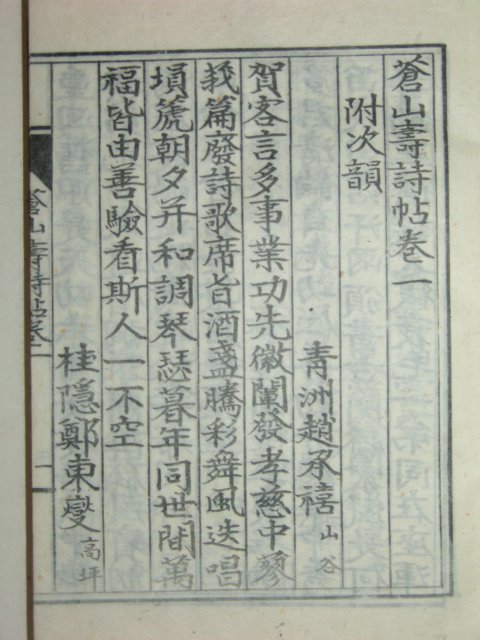 蒼山壽詩帖卷一
附次韻
青洲趙承禧山谷
賀客言多事業功先徽闡發孝慈中蓼
莪篇廢詩歌席旨酒盞騰彩舞風迭唱
塤箎朝夕并和調琴瑟暮年同世間萬
福皆由善驗看斯人一不空
桂隱鄭東燮高坪
蒼山壽詩帖卷一
一